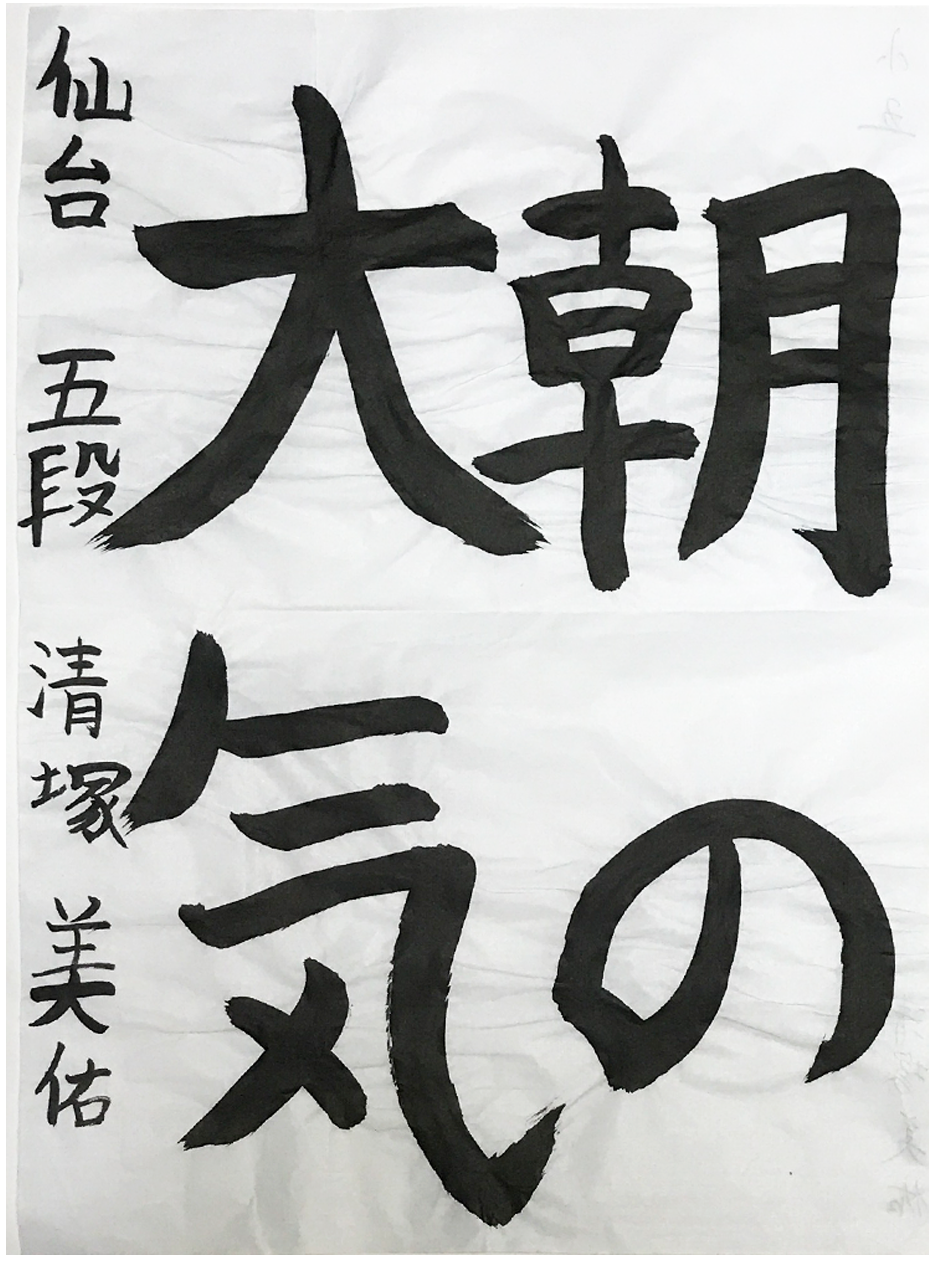 朝の
大気
仙台 五段 清塚 美佑